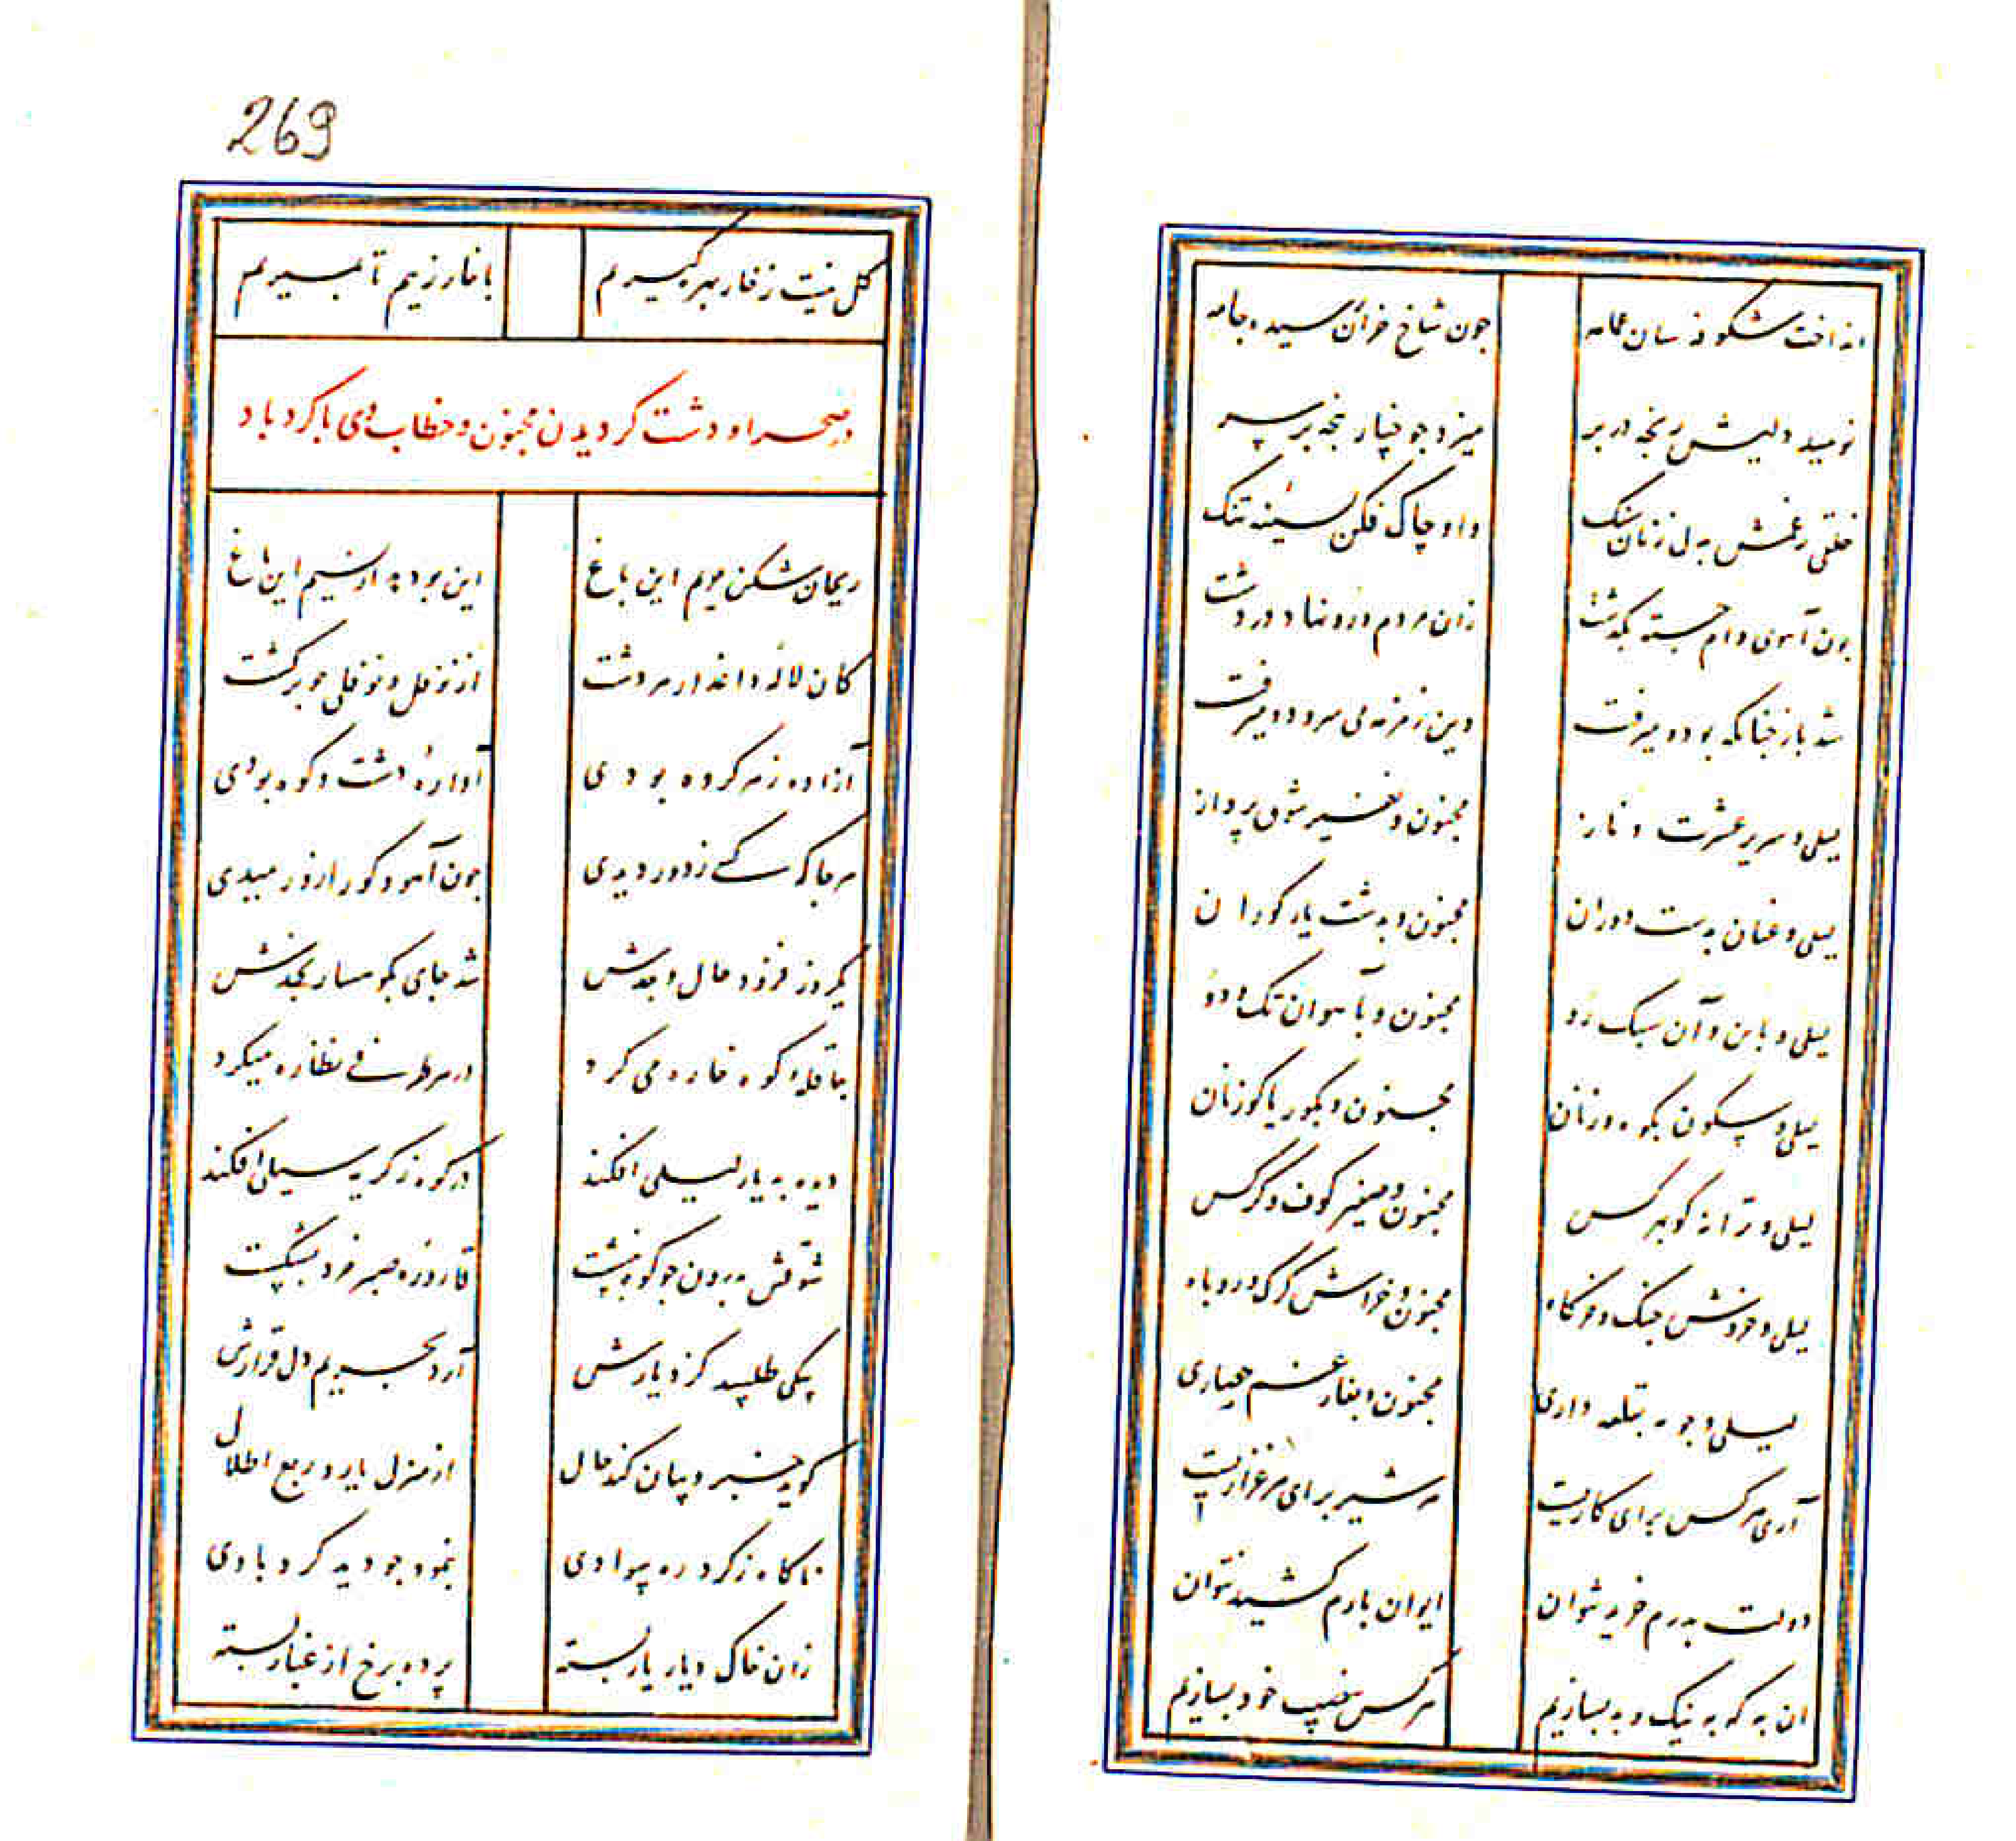 انداخت شکوفه سان عمامه چون شاخ خزان سیده جامه
نومید دلیش رنجه در بر میزد چو چنار پنجه بر سر
خلقی ز غمش بدل زنان سنک او چاک فکن بسینه تنک
چون آهوی دام جسته بگذشت زان مردم دزونها دور دشت
شد باز چنانکه بود و میرفت وین زمزمه می سرود و میرفت
لیلی و سریر عشرت و ناز مجنون و نفیر شوق پرداز
لیلی و عنان بدست دوران مجنون و بدشت یار کوران
لیلی و باین و آن سبک رو مجنون و بآهوان تک و دو
لیلی و سکون بکوه وزنان مجنون و بکور یا کوزنان
لیلی و ترانه کو بهر کس مجنون و صفیر کوف و کرکس
لیلی و خروش چنک و خرکاه مجنون و خراش کرک و روباه
لیلی و چو مه بقلعه داری مجنون و بغار غم حصاری
آری هر کس برای کاریست هر شیر برای مرغزاریست
دولت بدرم خرید نتوان ایوان بارم کشید نتوان
ان به که به نیک و بد بسازیم هر کس بنصیب خود بسازیم
269
کل نیست ز خار بهر کیریم با خار زیم تا بمیریم
در صحرا و دشت کردیدن مجنون و خطاب وی با کردباد
ریحان شکن بوم این باغ این بوید از نسیم این باغ
کان لاله داغدار سردشت از نوفل و نوفلی چو برکشت
آزاده ز هر کروه بودی آواره دشت و کوه بودی
هر جا که کسی ز دور دیدی چون آهو و کور ازو رمیدی
یکروز فزود حال وجدش شد جای بکوهسار نجدش
بر قله کوه خاره می کرد در هر طرفی نظاره میکرد
دیده به یار لیلی افکند در کوه ز کریه سیلی افکند
شوقش بدرون چو کوه بنشست قاروره صبر خرد بشکست
پیکی طلبید کز دیارش آرد بحریم دل قرارش
کوید خبر و بیان کند حال از منزل یار و ربع اطلال
ناکاه ز کرد ره بوادی بنمود چو دید کردبادی
زان خاک دیار یار بسته پرده برخ از غبار بسته